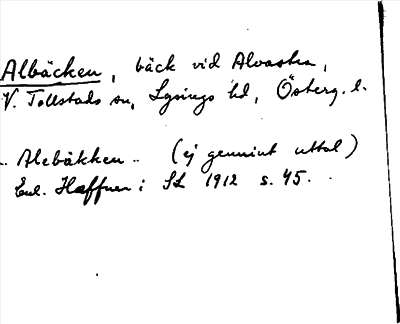 Albäcken, bäck vid Alvastra,
V. Tollstads sn, Lysings hd, Österg. l.
.. Alebäkken .. (ej genuint uttal)
Enl. Haffner i SL 1912 s. 45.